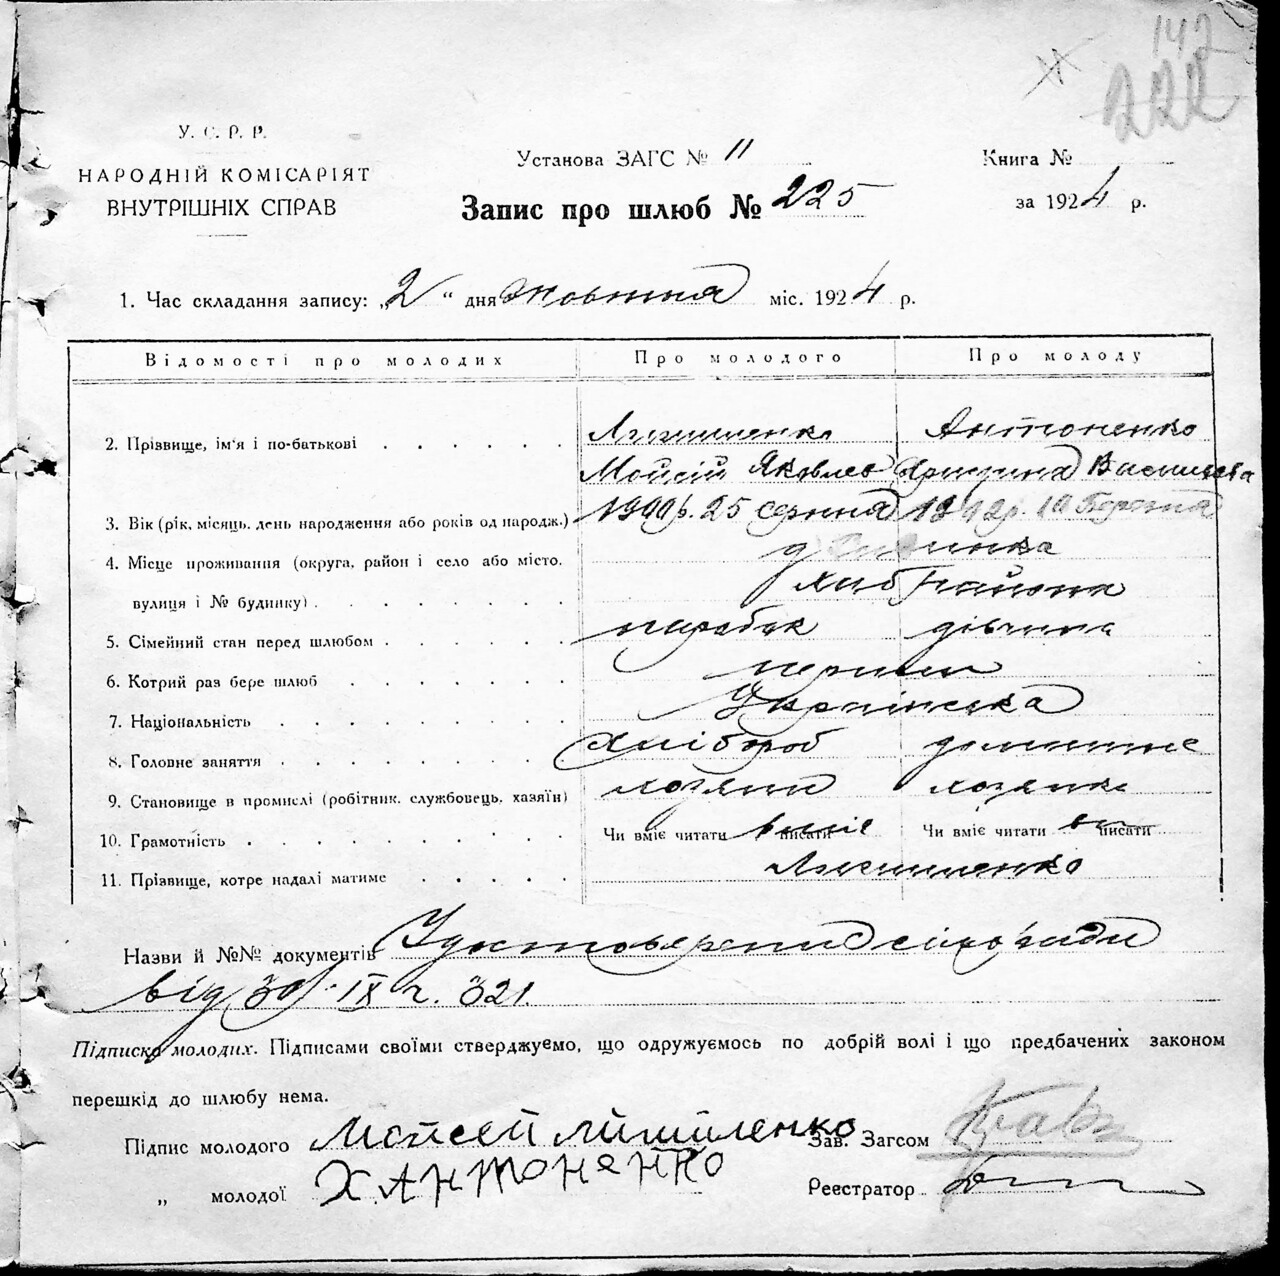 142
222
У. С. Р. Р.
НАРОДНІЙ КОМІСАРІЯТ
ВНУТРІШНІХ СПРАВ
Установа ЗАГС № 11
Запис про шлюб № 225
Книга №
за 1924 р.
1. Час складання запису: „2" дня жовтня міс. 1924 р.
Відомості про молодих Про молодого Про молоду
2. Прізвище, ім'я і по-батькові Антоненко
Мойсій Яковлев Василівна
3. Вік (рік, місяць, день народження або років од народж.) 25 серпня
4. Місце проживання (округа, район і село або місто,
вулиця і № будинку) району
5. Сімейний стан перед шлюбом парубок дівчина
6. Котрий раз бере шлюб перший
7. Національність Українська
8. Головне заняття хлібороб домашнє
9. Становище в промислі (робітник, службовець, хазяїн) хозяин хозяйка
10. Грамотність Чи вміє читати вміє писати Чи вміє читати писати
11. Прізвище, котре надалі матиме
Назви й №№ документів Удостоверения сільради
від 30/IX г. 321.
Підписка молодих. Підписами своїми стверджуємо, що одружуємось по добрій волі і що предбачених законом
перешкід до шлюбу нема.
Підпис молодого Мойсей
Зав. Загсом
„ молодої Х. Антоненко
Реєстратор